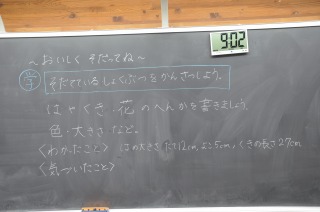 9:02
～おいしく そだってね～
学 そだてているしょくぶつをかんさつしよう。
はやくき、花のへんかを書きましょう。
色・大きさなど。
〈わかったこと〉 はの大きさ たて12cm、よこ5cm、くきの長さ27cm
〈気づいたこと〉